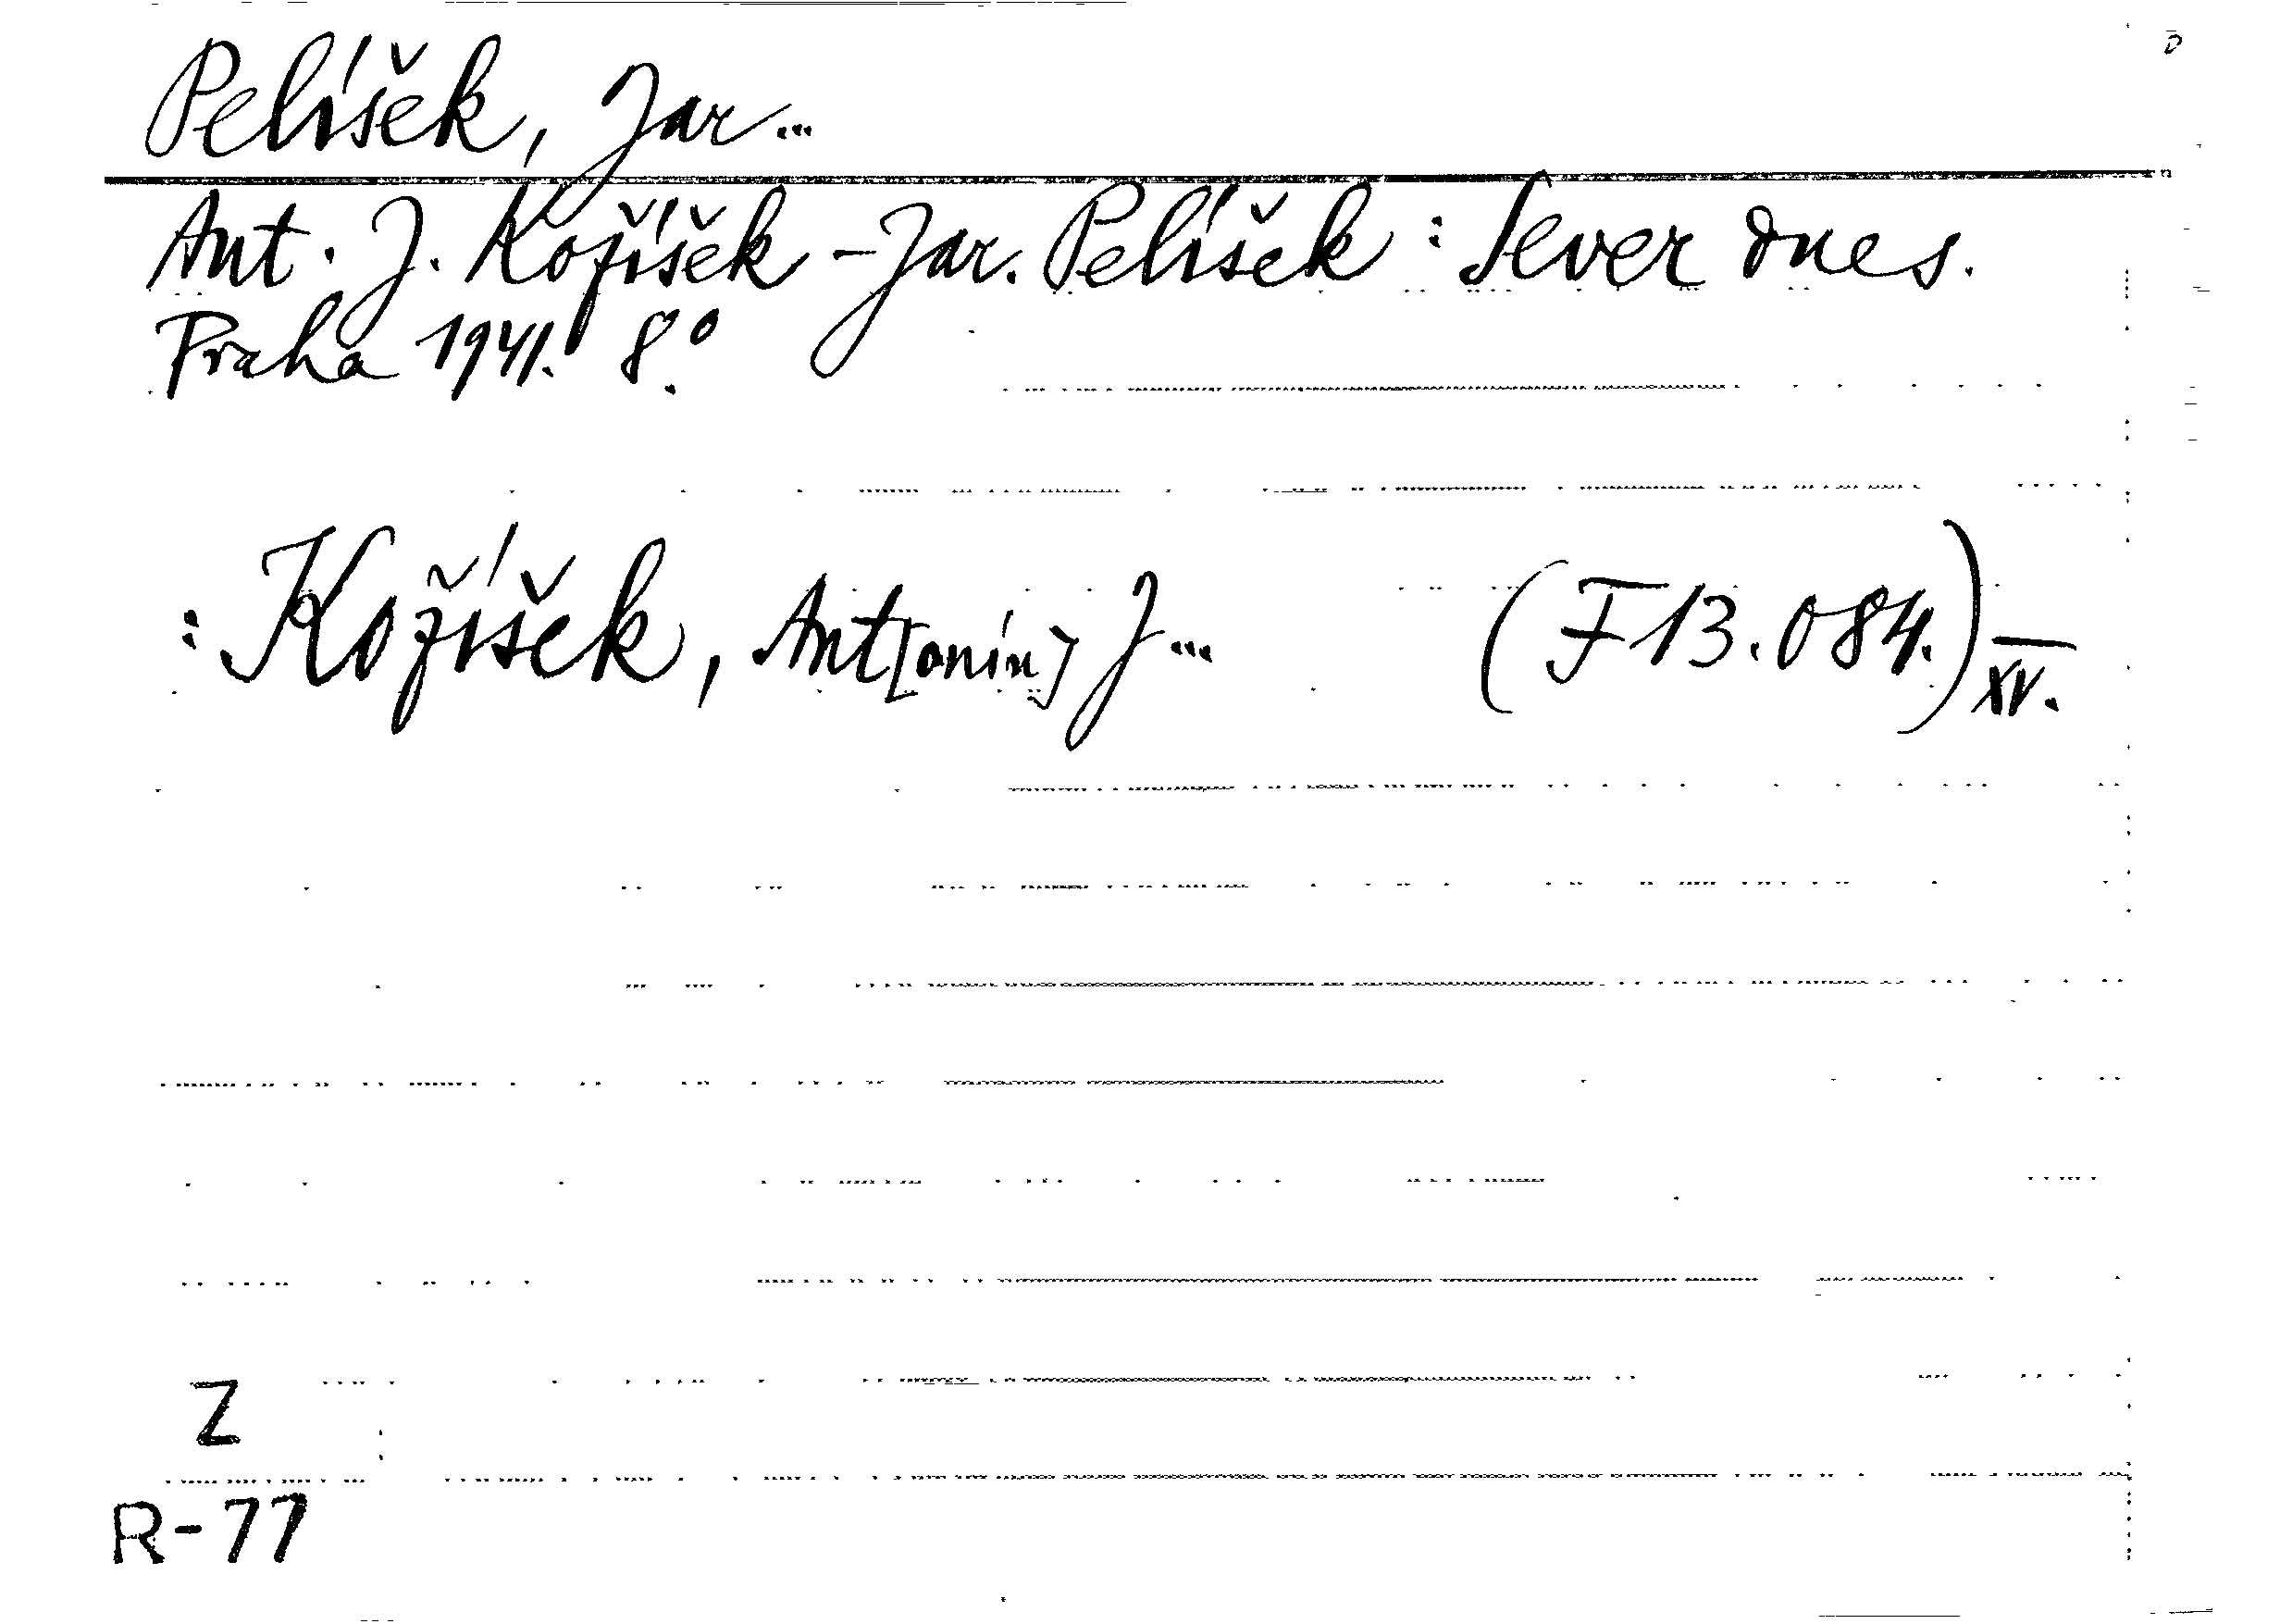 Pelíšek, Jar...
Ant. J. Kožíšek - Jar. Pelíšek : Sever dnes.
Praha 1941. 8°.
: Kožíšek, Ant[onín] J... (F 13.084.) XV.
Z
R-77